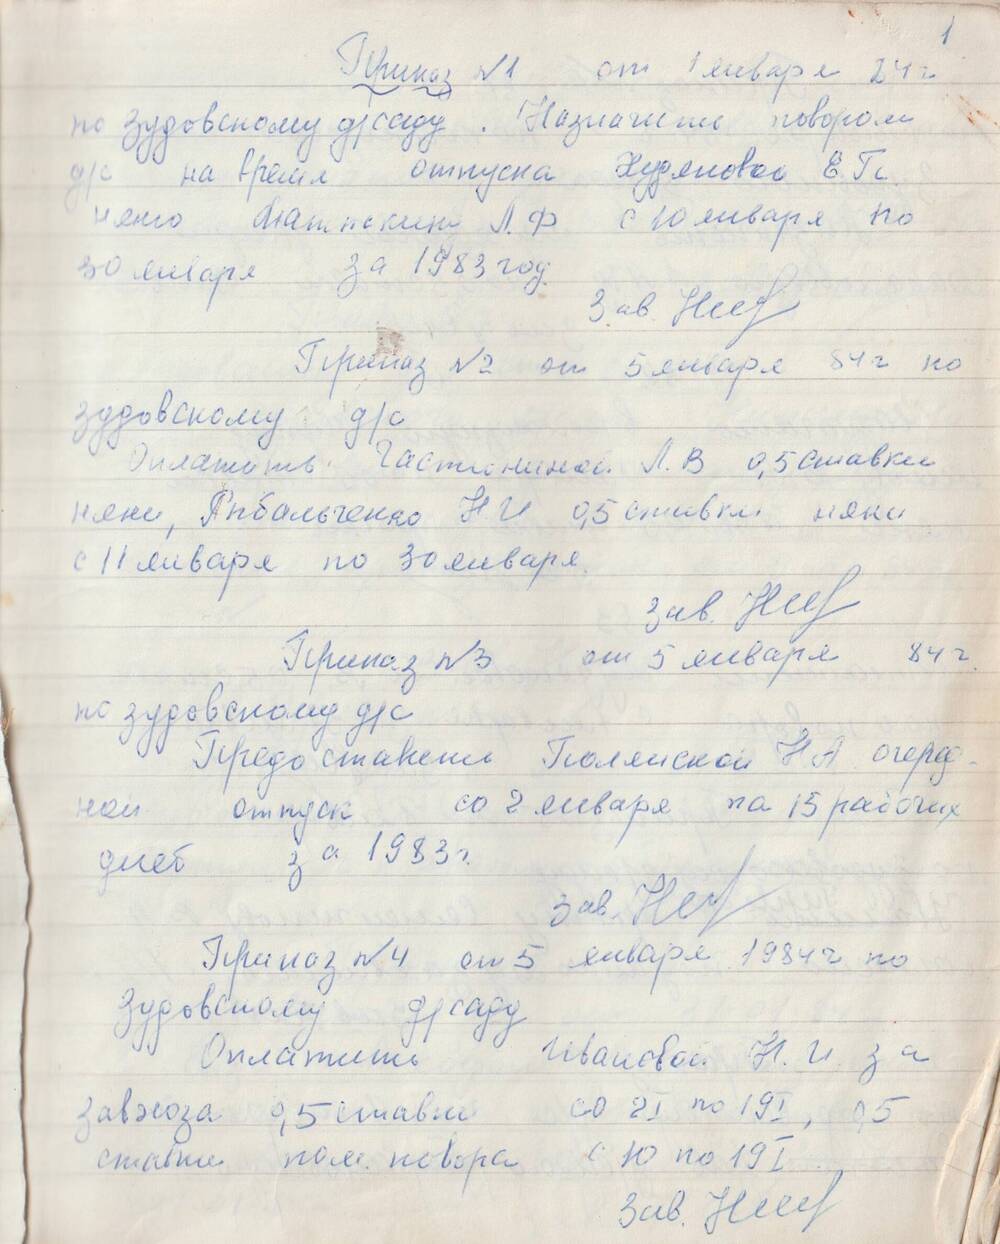 1
Приказ №1 от 1 января 84 г
по Зудовскому д/саду. Назначить поваром
д/с на время отпуска Худяковой Е.Г.
няню Л.Ф с 10 января по
30 января за 1983 год.
Зав.
Приказ №2 от 5 января 84 г по
Зудовскому д/с
Оплатить Л.В 0,5 ставки
няни, Рыбальченко Н И 0,5 ставки няни
с 11 января по 30 января.
Зав.
Приказ №3 от 5 января 84 г.
по зудовскому д/с
Предоставить Н А очеред-
ной отпуск со 2 января на 15 рабочих
дней за 1983 г.
Зав.
Приказ №4 от 5 января 1984 г по
Зудовскому д/саду
Оплатить Ивановой Н. И. за
завхоза 0,5 ставки со 2 I по 19 I, 0,5
ставки пом. повора с 10 по 19 I
Зав.